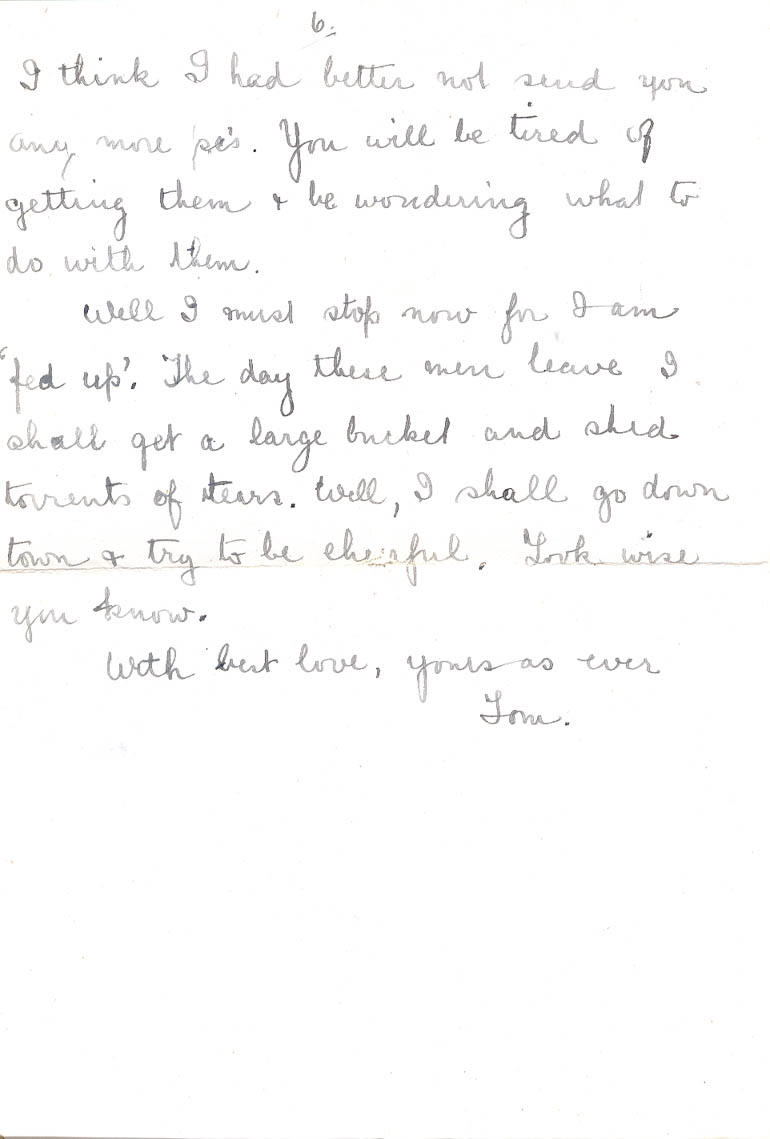 6.
I think I had better not send you
any more pc's. You will be tired of
getting them & be wondering what to
do with them.
Well I must stop now for I am
'fed up'. The day these men leave I
shall get a large bucket and shed
torrents of tears. Well, I shall go down
town & try to be cheerful. Look wise
you know.
With best love, yours as ever
Tom.